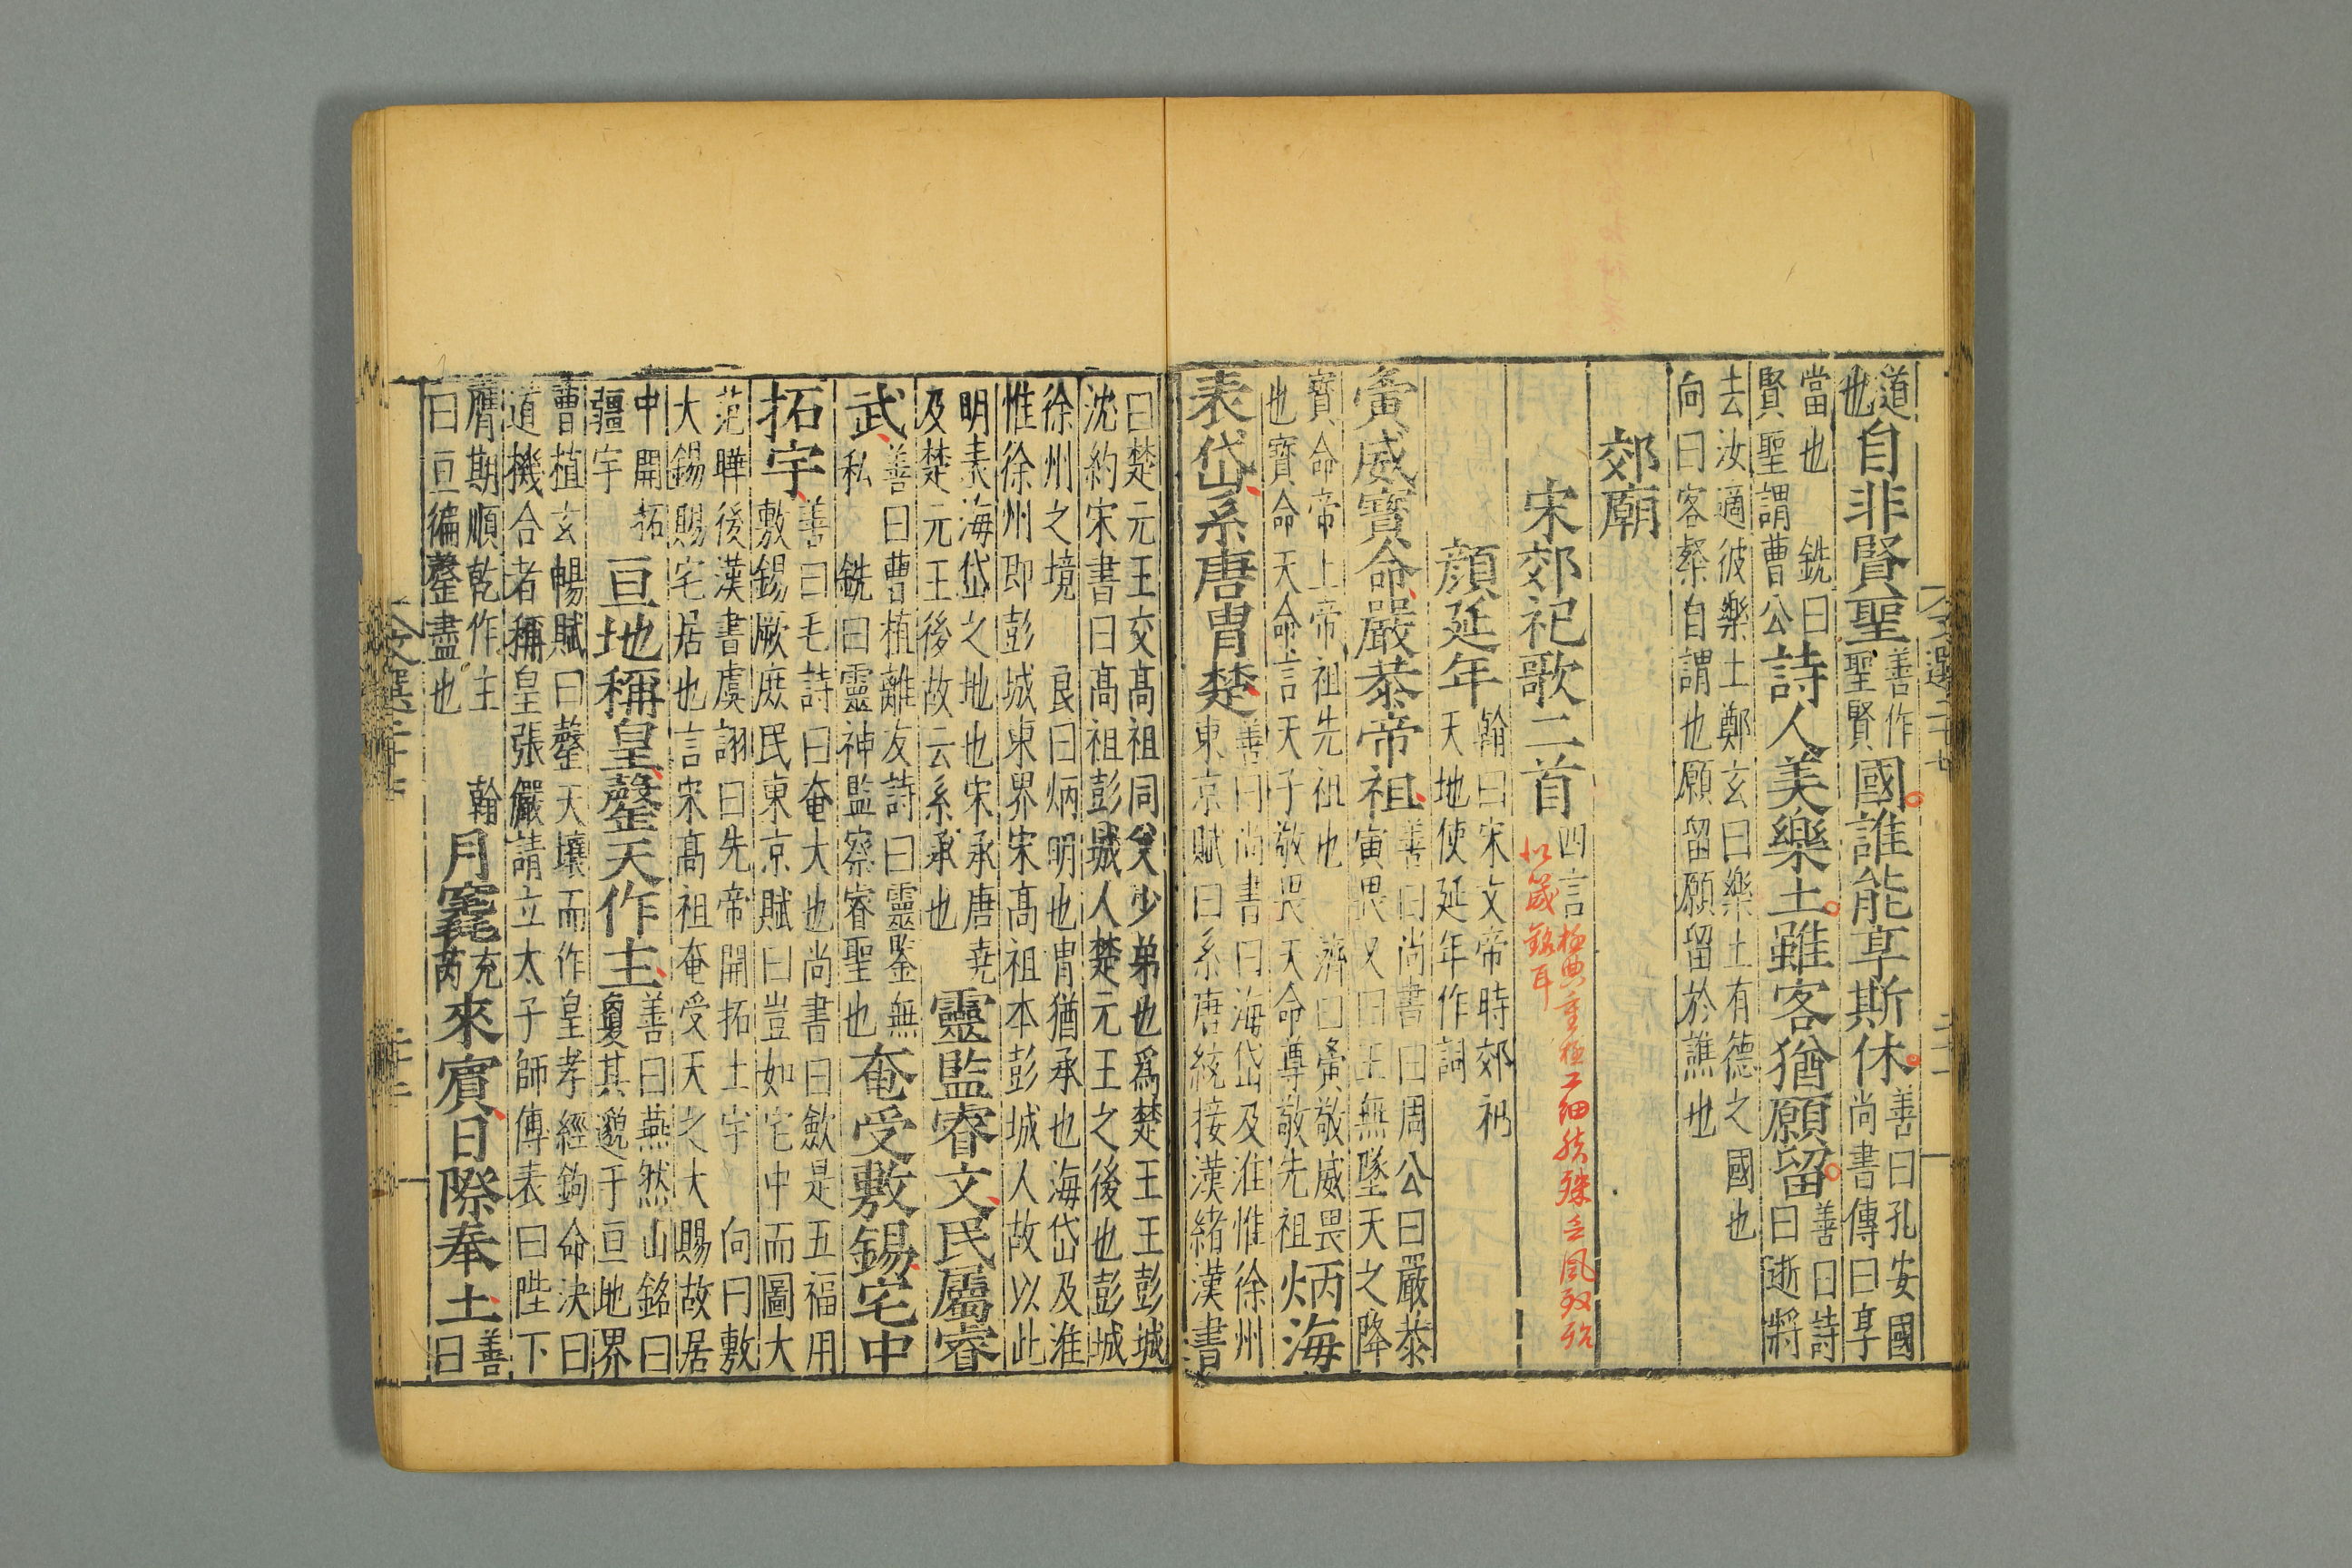 道
也自非賢聖善作聖賢國誰能享斯休善曰孔安國尚書傳曰享
當也 銑曰
賢聖謂曹公詩人美樂土雖客猶願留善曰詩曰逝將
去汝適彼樂土鄭玄曰樂土有德之國也
向曰客粲自謂也願留願留於譙也
郊廟
宋郊祀歌二首四言
極典重極工細然殊乏風致殆
似箴銘耳
顏延年翰曰宋文帝時郊祀天地使延年作詞
夤威寶命嚴恭帝祖善曰尚書曰周公曰嚴恭寅畏又曰王無墜天之降
寶命帝上帝祖先祖也 濟曰夤敬威畏
也寶命天命言天子敬畏天命尊敬先祖炳海
表岱系唐胄楚善曰尚書曰海岱及淮惟徐州東京賦曰系唐統接漢緒漢書
曰楚元王交高祖同父少弟也爲楚王王彭城
沈約宋書曰高祖彭城人楚元王之後也彭城
徐州之境 良曰炳明也胄猶承也海岱及淮
惟徐州即彭城東界宋高祖本彭城人故以此
明表海岱之地也宋承唐堯
及楚元王後故云系承也靈監睿文民屬睿
武善曰曹植離友詩曰靈鑒無私 銑曰靈神監察睿聖也奄受敷錫宅中
拓宇善曰毛詩曰奄大也尚書曰斂是五福用敷錫厥庶民東京賦曰豈如宅中而圖大
范曄後漢書虞詡曰先帝開拓土宇 向曰敷
大錫賜宅居也言宋高祖奄受天之大賜故居
中開拓
疆宇亘地稱皇罄天作主善曰燕然山銘曰敻其邈于亘地界
曹植玄暢賦曰罄天壤而作皇孝經鉤命決曰
道機合者稱皇張儼請立太子師傅表曰陛下
膺期順乾作主 翰
曰亘徧罄盡也月竁充芮來賓日際奉土善曰
文選二十七
二十一
文選二十七
二十二